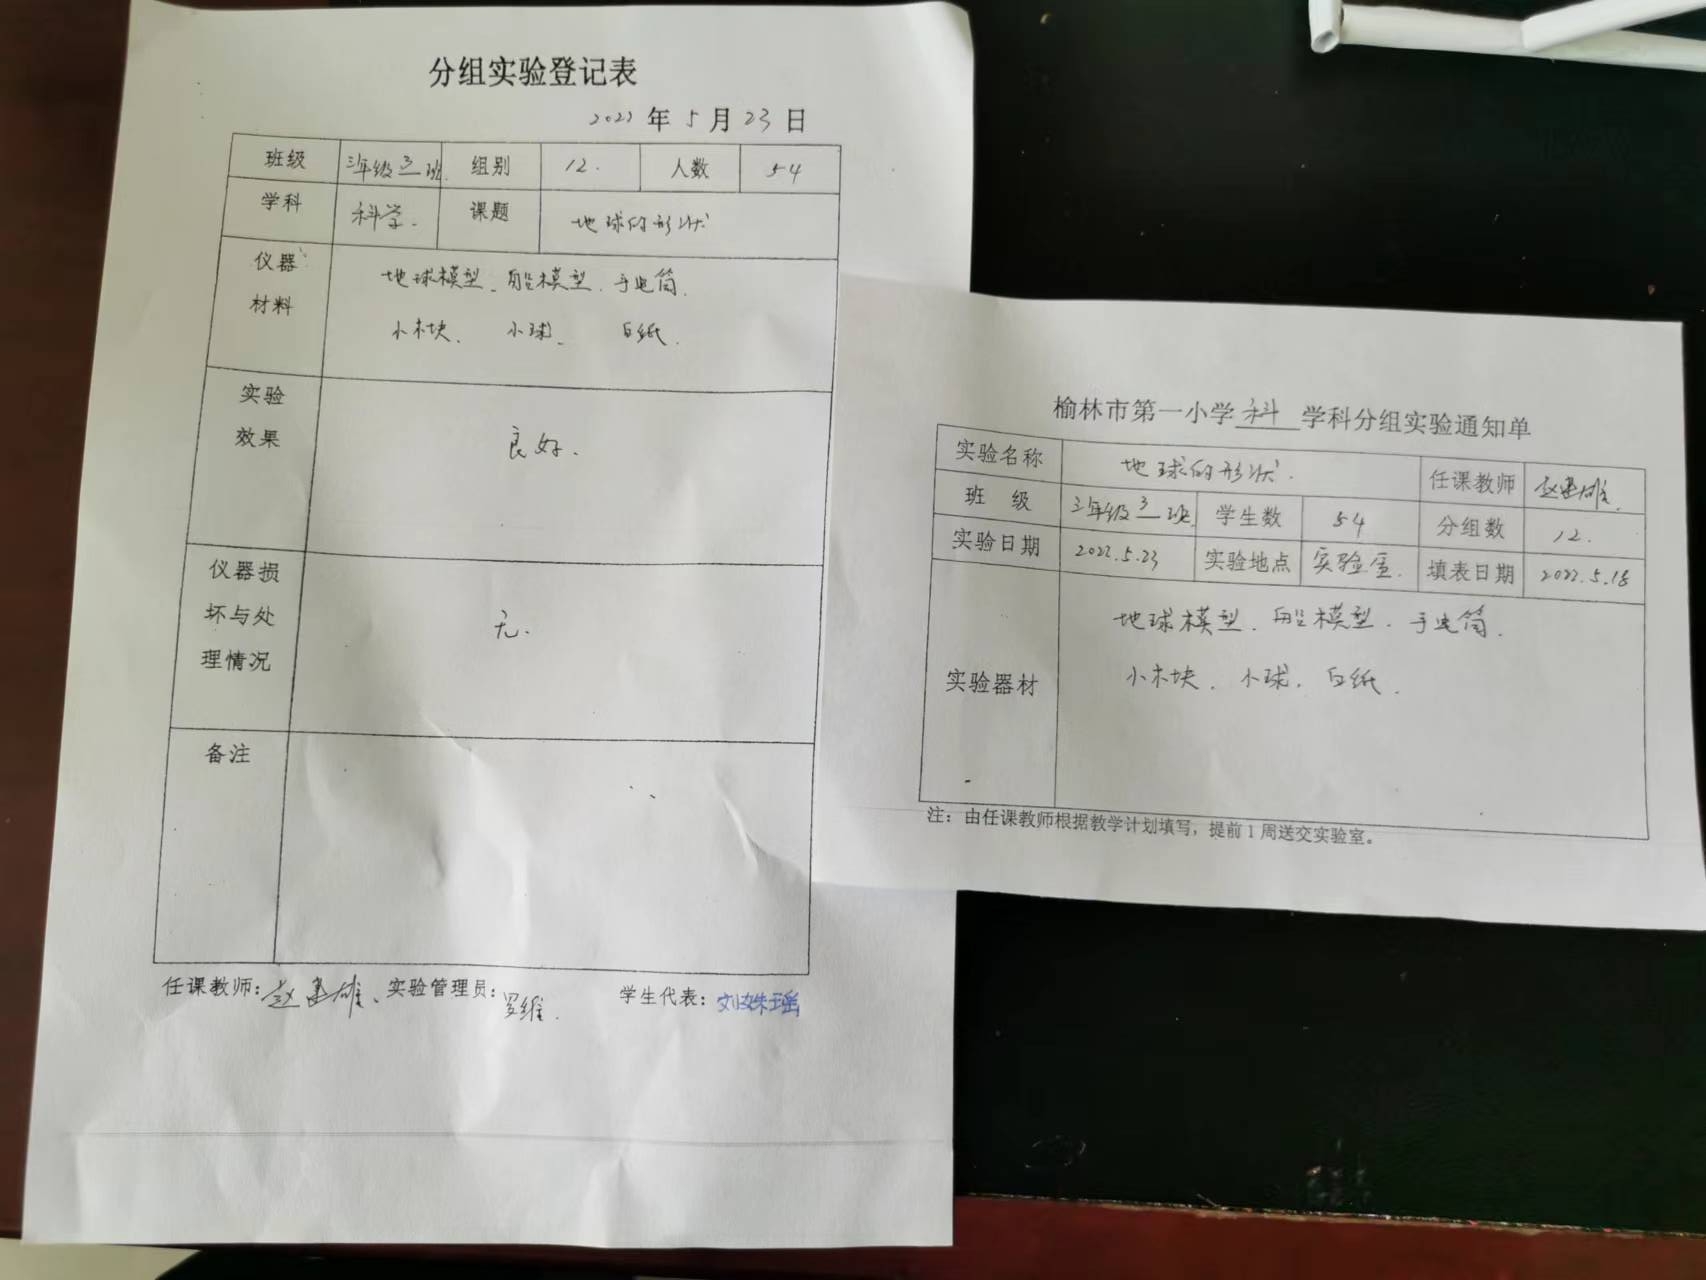 分组实验登记表
2022年5月23日
班级 三年级3班 组别 12. 人数 54
学科 科学. 课题 地球的形状
仪器材料 地球模型、船模型、手电筒、
小木块、 小球、 白纸.
实验效果 良好.
仪器损坏与处理情况 无.
备注
任课教师: 赵建雄、实验管理员: 罗维. 学生代表: 刘姝瑶
榆林市第一小学 科 学科分组实验通知单
实验名称 地球的形状. 任课教师 赵建雄.
班 级 三年级3班 学生数 54 分组数 12.
实验日期 2022.5.23 实验地点 实验室. 填表日期 2022.5.18
实验器材 地球模型、船模型、手电筒.
小木块、小球、白纸.
注: 由任课教师根据教学计划填写, 提前1周送交实验室。